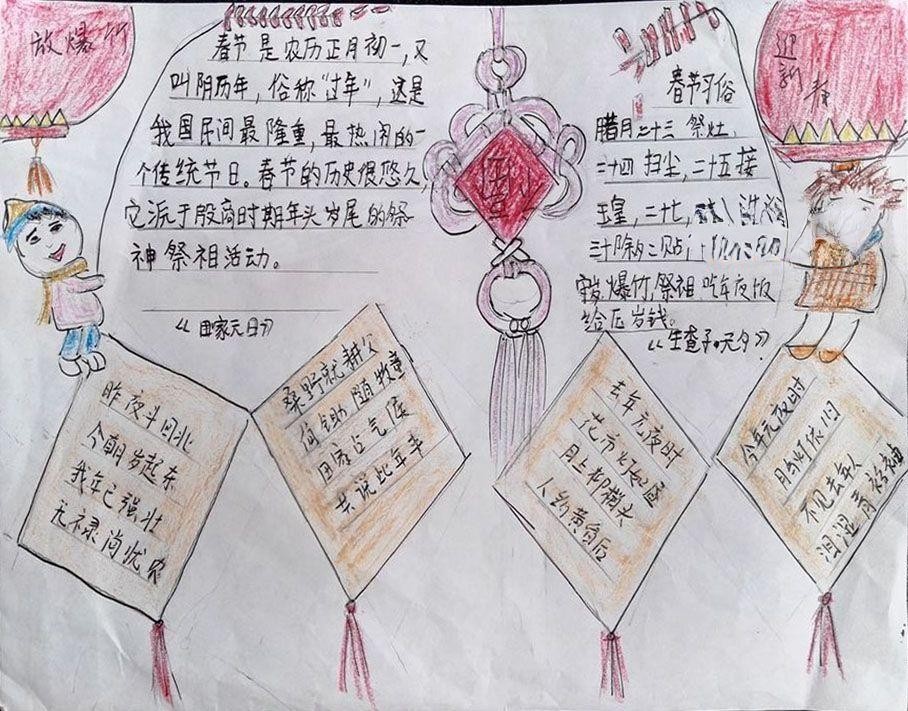 放爆竹
春节是农历正月初一,又
叫阴历年,俗称“过年”,这是
我国民间最隆重,最热闹的一
个传统节日。春节的历史很悠久,
它派于殷商时期年头岁尾的祭
神祭祖活动。
《田家元日》
迎
新
春节习俗
腊月二十三 祭灶,
二十四 扫尘,二十五接
玉皇,二十七,
三十除
爆竹,祭祖 吃年夜饭
给压岁钱。
《生查子·元夕》
昨夜斗回北
今朝岁起东
我年已强壮
无禄尚忧农
桑野就耕父
荷锄随牧童
田家占气候
共说此年丰
去年元夜时
花市灯如昼
月上柳梢头
人约黄昏后
今年元夜时
月与灯依旧
不见去年人
泪湿春衫袖